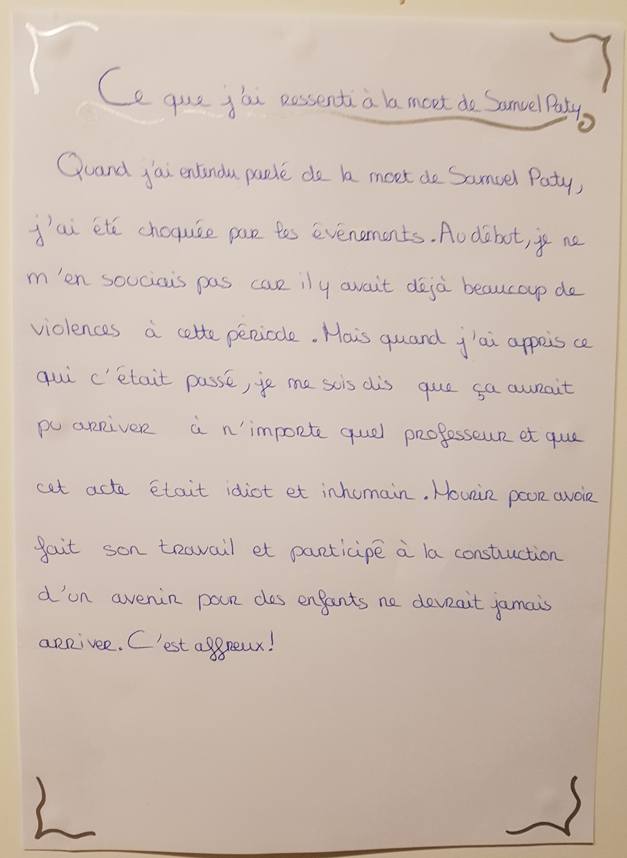 Ce que j'ai ressenti à la mort de Samuel Paty
Quand j'ai entendu parlé de la mort de Samuel Paty,
j'ai été choquée par les événements. Au début, je ne
m'en souciais pas car il y avait déjà beaucoup de
violences à cette période. Mais quand j'ai appris ce
qui c'était passé, je me suis dis que ça aurait
pu arriver à n'importe quel professeur et que
cet acte était idiot et inhumain. Mourir pour avoir
fait son travail et participé à la construction
d'un avenir pour des enfants ne devrait jamais
arriver. C'est affreux!